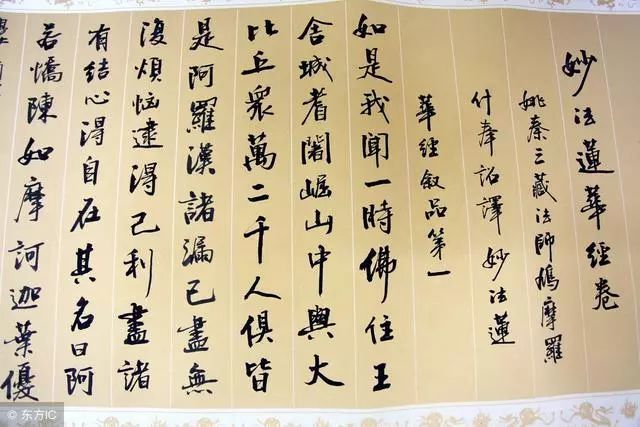 妙法蓮華經卷
姚秦三藏法師鳩摩羅
什奉詔譯妙法蓮
華經敘品第一
如是我聞一時佛住王
舍城耆闍崛山中與大
比丘衆萬二千人俱皆
是阿羅漢諸漏已盡無
復煩惱逮得己利盡諸
有結心得自在其名曰阿
若憍陳如摩訶迦葉優
© 东方IC